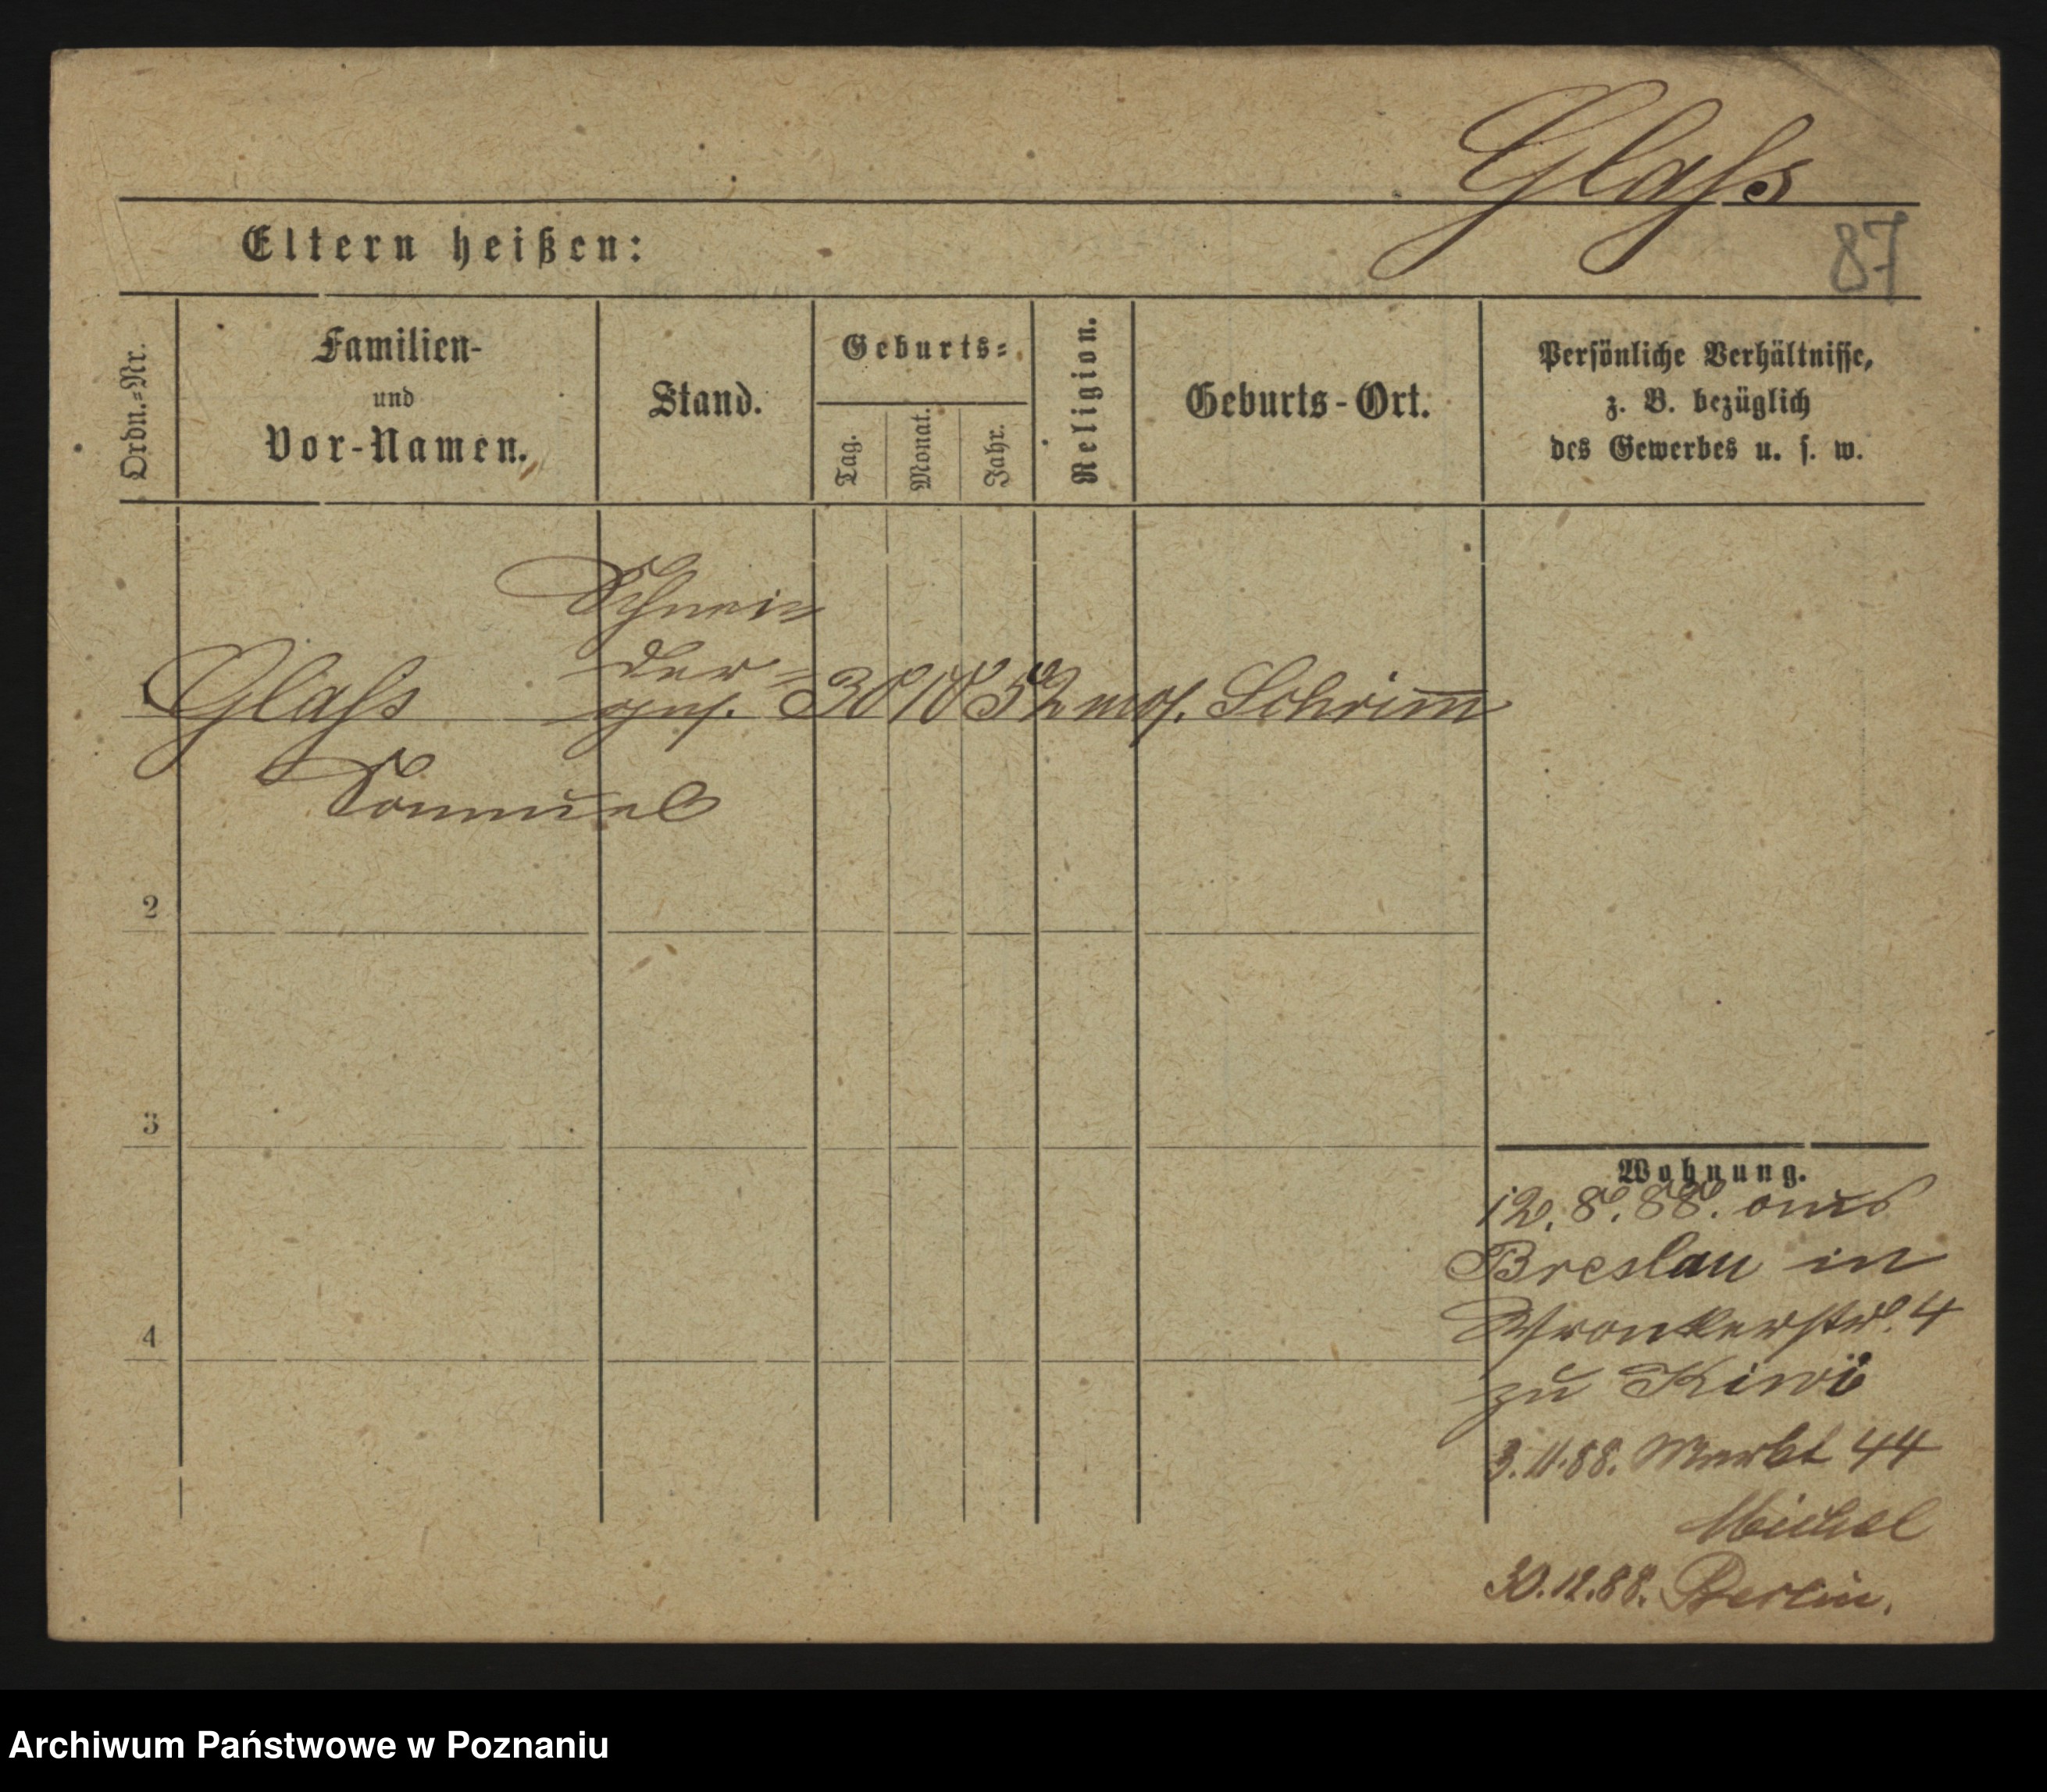 Glaſs
87
Eltern heißen:
Ordn.-Nr.
Familien-
und
Vor-Namen.
Stand.
Geburts-
Tag.
Monat.
Jahr.
Religion.
Geburts-Ort.
Persönliche Verhältnisse,
z. B. bezüglich
des Gewerbes u. s. w.
Schnei=
der=
Glaſs geſ. 30 10 52 moſ. Schrim̄
Samuel
2
3
4
Wohnung.
12. 8. 88. aus
Breslau in
Wronkerstr. 4
zu
3. 11. 88. Markt 44
Michel
30. 12. 88. Berlin.
Archiwum Państwowe w Poznaniu